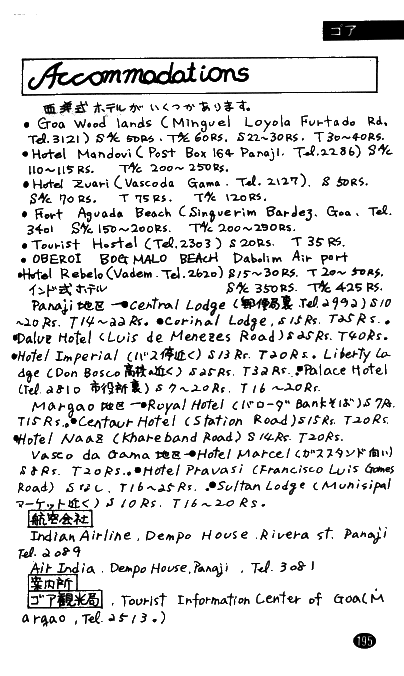 ゴア
Accommodations
西洋式ホテルがいくつかあります。
• Goa Wood lands (Minguel Loyola Furtado Rd,
Tel.3121) S A/c 50Rs. T A/c 60Rs. S22~30Rs. T 30~40Rs.
• Hotel Mandovi (Post Box 164 Panaji. Tel.2286) S A/c
110~115Rs. T A/c 200~250Rs.
• Hotel Zuari (Vascoda Gama. Tel. 2127). S 50Rs.
S A/c 70Rs. T 75Rs. T A/c 120Rs.
• Fort Aguada Beach (Singuerim Bardez, Goa. Tel.
3401 S A/c 150~200Rs. T A/c 200~290Rs.
• Tourist Hostel (Tel.2303) S 20Rs. T 35Rs.
• OBEROI BOGMALO BEACH Dabolim Air port
•Hotel Rebelo (Vadem. Tel.2620) S15~30Rs. T 20~50Rs.
インド式ホテル S A/c 350Rs. T A/c 425Rs.
Panaji地区 →•Central Lodge (郵便局裏 Tel.2992) S10
~20Rs. T14~22Rs. •Corinal Lodge, S15Rs. T25Rs..
•Dalve Hotel (Luis de Menezes Road) S25Rs. T40Rs.
•Hotel Imperial (バス停近く) S12Rs. T20Rs.. Liberty Lo
dge (Don Bosco高校の近く) S25Rs. T32Rs..•Palace Hotel
(Tel. 2810 市役所裏) S7~20Rs. T16~20Rs.
Margao地区 →•Royal Hotel (バローダBankそば) S7Rs.
T15Rs..•Centaur Hotel (Station Road) S15Rs. T20Rs.
•Hotel Naaz (Khareband Road) S14Rs. T20Rs.
Vasco da Gama地区 →•Hotel Marcel (ガススタンド向い)
S8Rs. T20Rs..•Hotel Pravasi (Francisco Luis Gomes
Road) S12L. T16~25Rs. .•Sultan Lodge (Munisipal
マーケット近く) S10Rs. T16~20Rs.
航空会社
Indian Airline, Dempo House. Rivera st. Panaji
Tel. 2089
Air India. Dempo House, Panaji, Tel. 3081
案内所
ゴア観光局, Tourist Information Center of Goa(M
argao, Tel. 2513.)
195